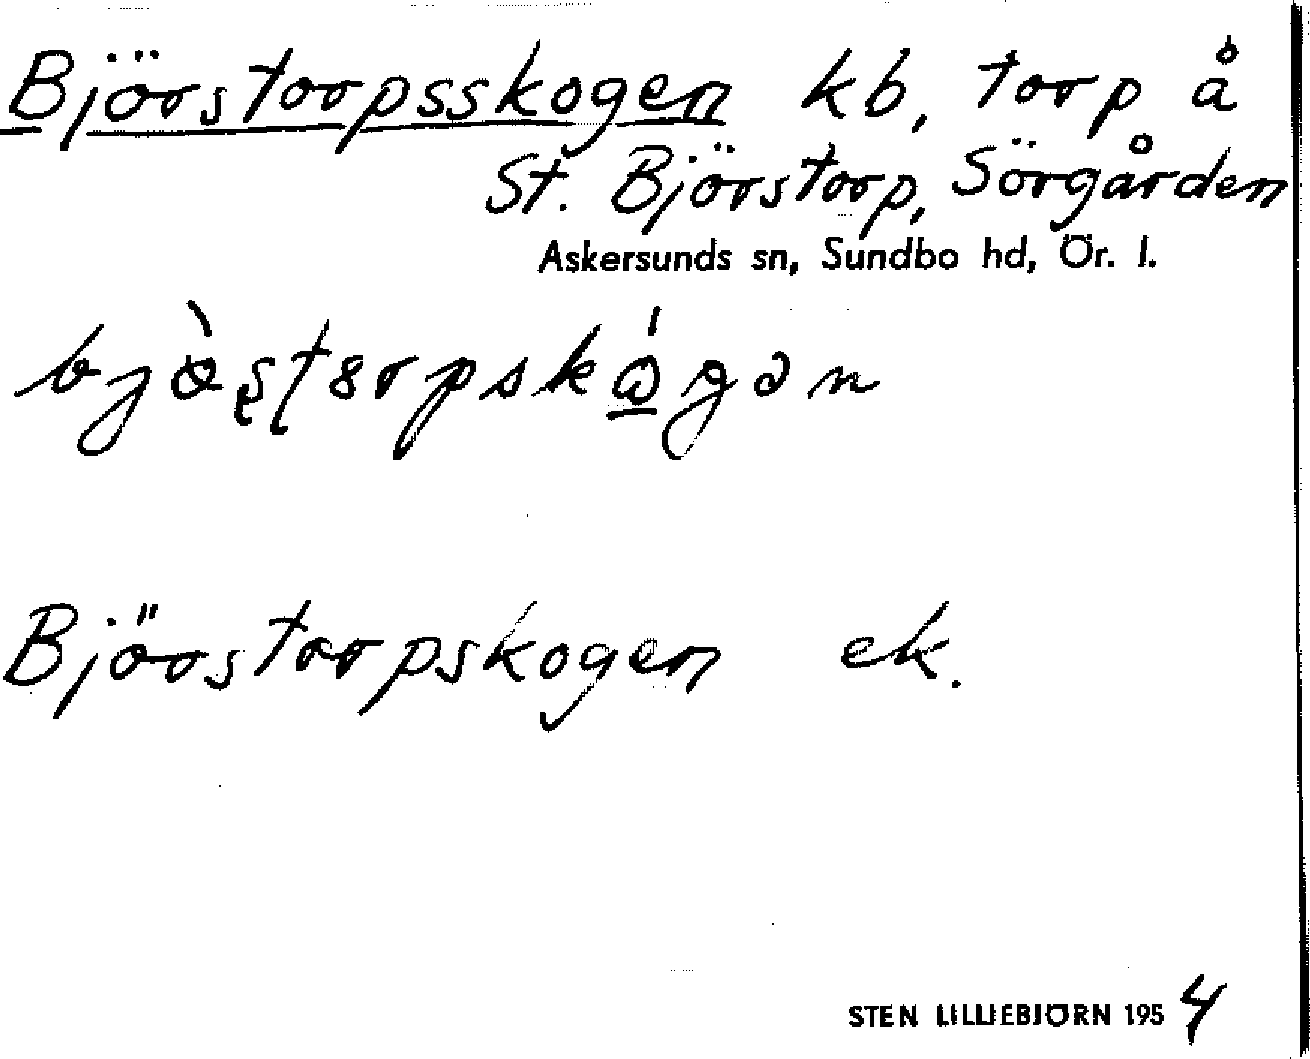 Björstorpsskogen kb, torp å
St. Björstorp, Sörgården
Askersunds sn, Sundbo hd, Ör. l.
Björstorpskogen ek.
STEN LILLIEBJÖRN 1954